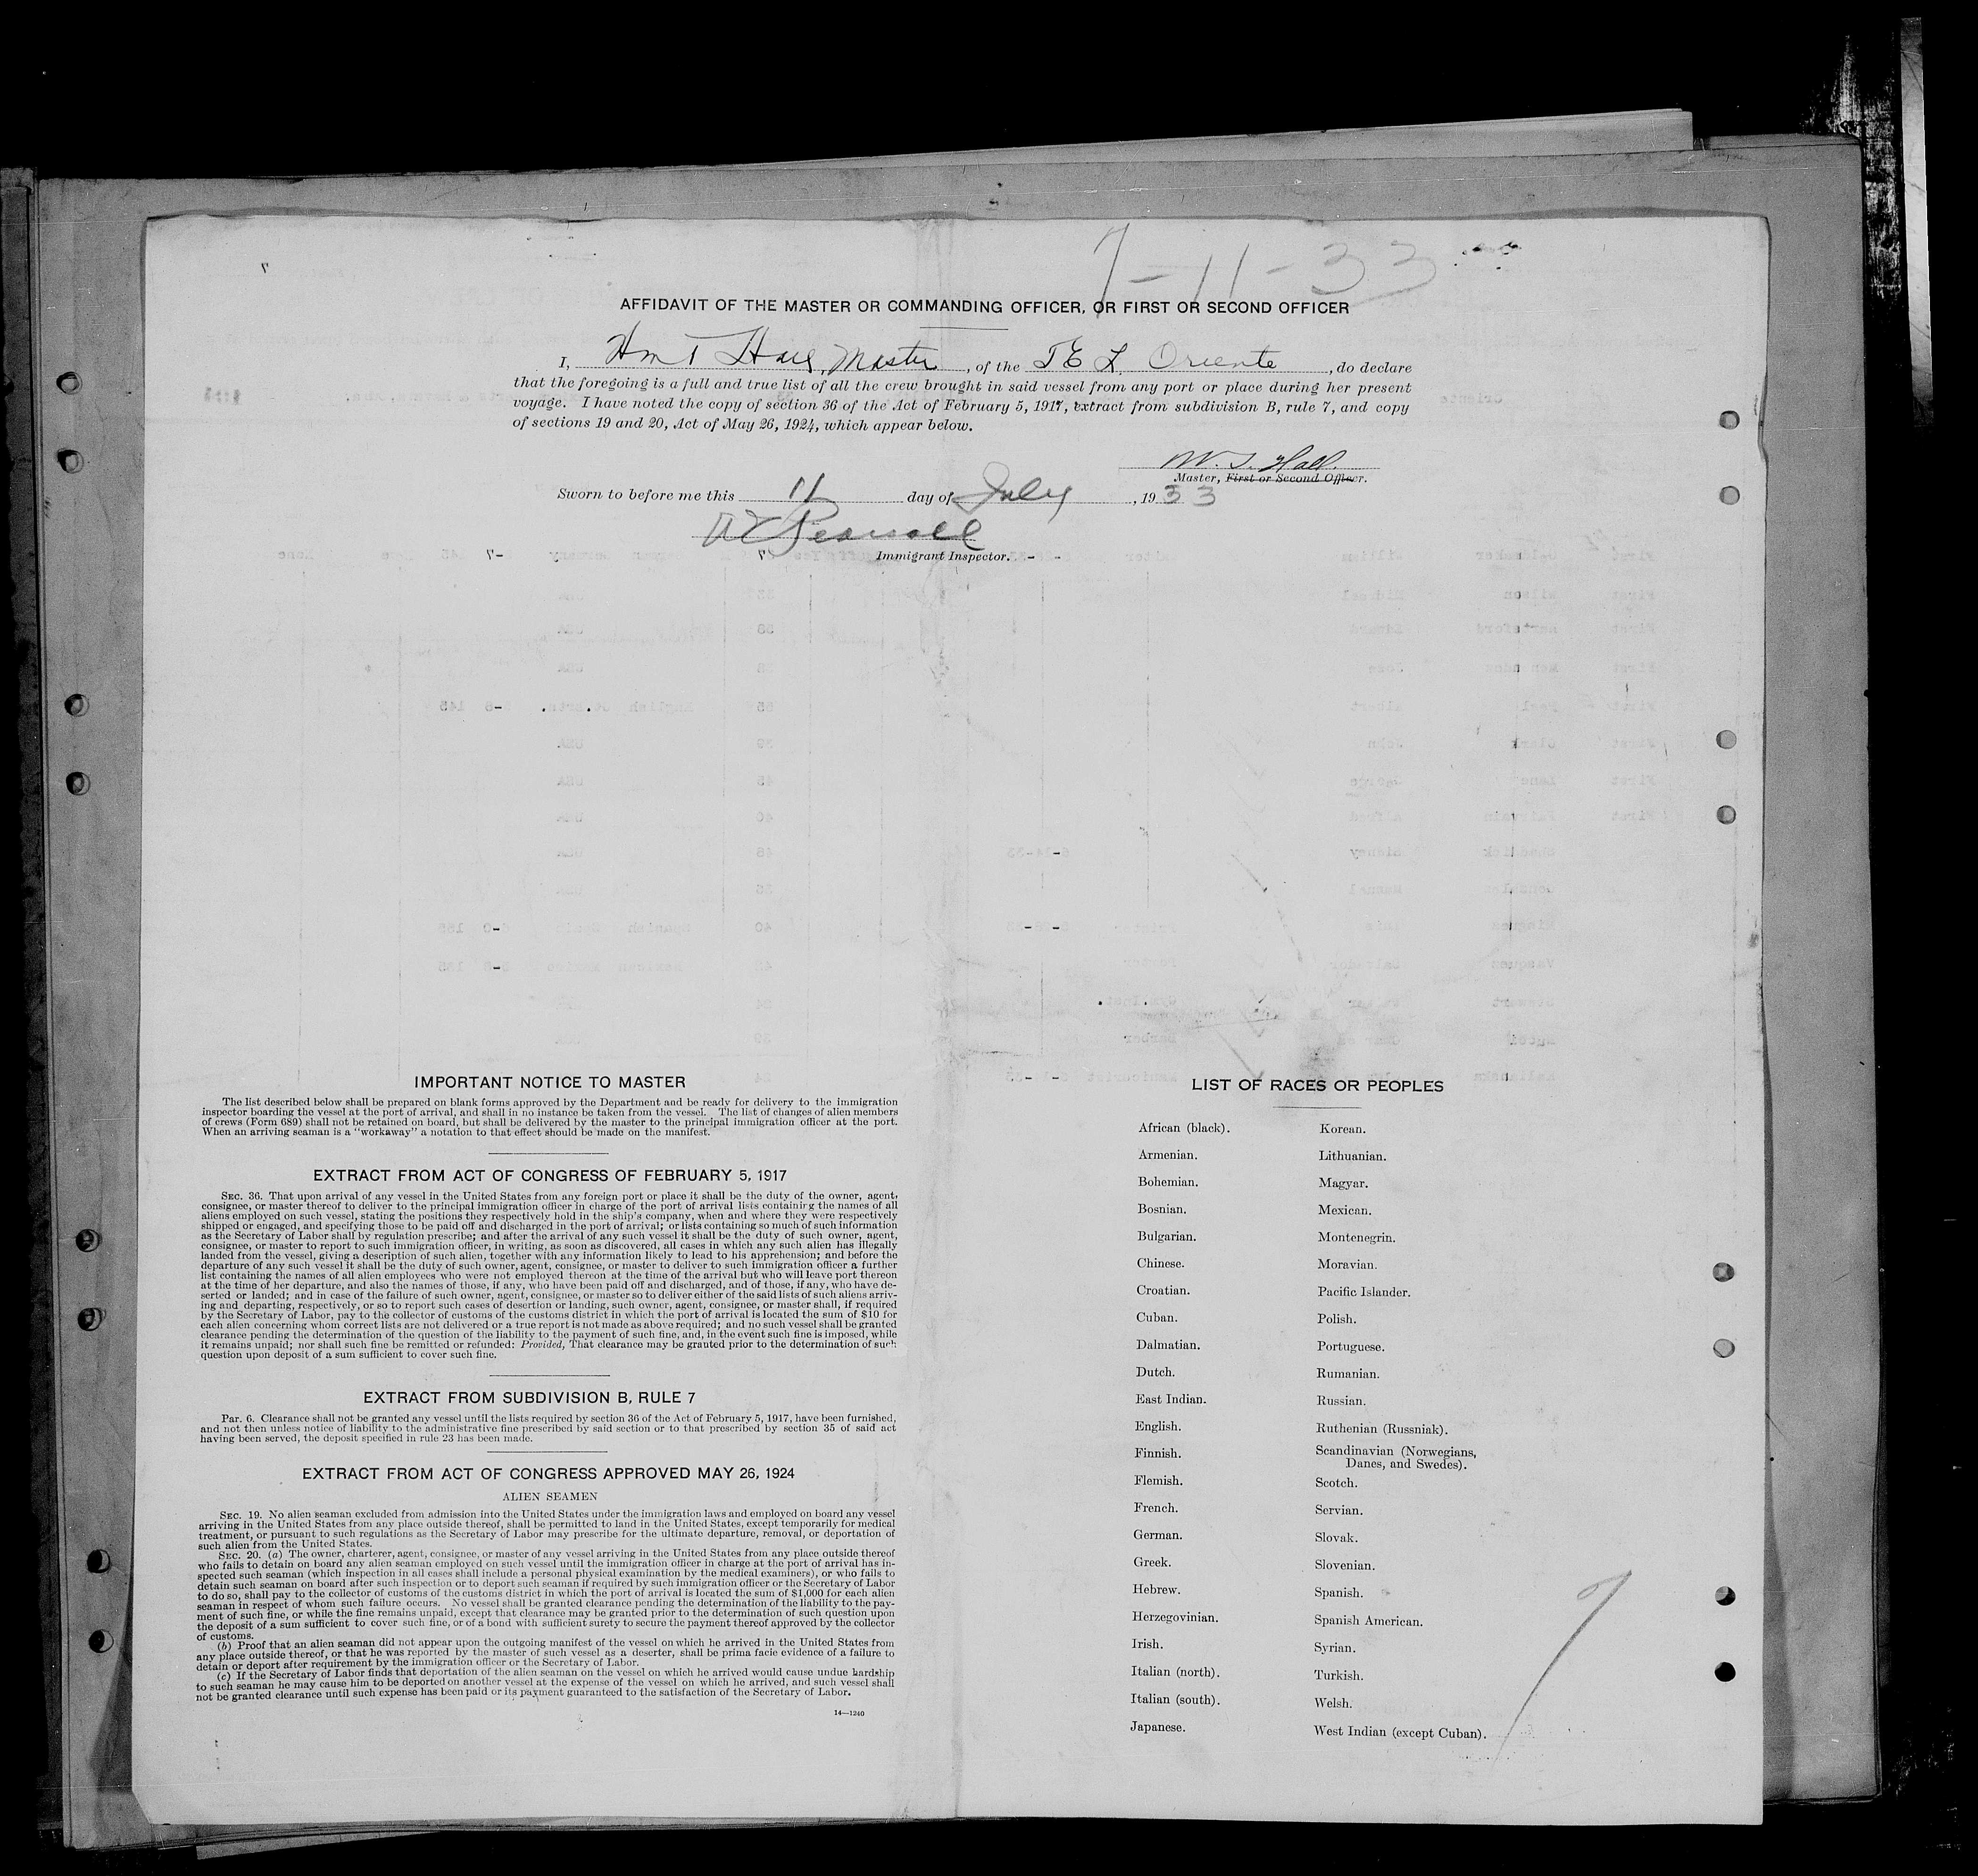 7-11-33
AFFIDAVIT OF THE MASTER OR COMMANDING OFFICER, OR FIRST OR SECOND OFFICER
I, Wm T Hall, Master, of the T E L Oriente, do declare
that the foregoing is a full and true list of all the crew brought in said vessel from any port or place during her present
voyage. I have noted the copy of section 36 of the Act of February 5, 1917, extract from subdivision B, rule 7, and copy
of sections 19 and 20, Act of May 26, 1924, which appear below.
W. T. Hall.
Master, First or Second Officer.
Sworn to before me this 11 day of July, 1933
Pearsall
Immigrant Inspector.
IMPORTANT NOTICE TO MASTER
The list described below shall be prepared on blank forms approved by the Department and be ready for delivery to the immigration
inspector boarding the vessel at the port of arrival, and shall in no instance be taken from the vessel. The list of changes of alien members
of crews (Form 689) shall not be retained on board, but shall be delivered by the master to the principal immigration officer at the port.
When an arriving seaman is a "workaway" a notation to that effect should be made on the manifest.
EXTRACT FROM ACT OF CONGRESS OF FEBRUARY 5, 1917
SEC. 36. That upon arrival of any vessel in the United States from any foreign port or place it shall be the duty of the owner, agent,
consignee, or master thereof to deliver to the principal immigration officer in charge of the port of arrival lists containing the names of all
aliens employed on such vessel, stating the positions they respectively hold in the ship's company, when and where they were respectively
shipped or engaged, and specifying those to be paid off and discharged in the port of arrival; or lists containing so much of such information
as the Secretary of Labor shall by regulation prescribe; and after the arrival of any such vessel it shall be the duty of such owner, agent,
consignee, or master to report to such immigration officer, in writing, as soon as discovered, all cases in which any such alien has illegally
landed from the vessel, giving a description of such alien, together with any information likely to lead to his apprehension; and before the
departure of any such vessel it shall be the duty of such owner, agent, consignee, or master to deliver to such immigration officer a further
list containing the names of all alien employees who were not employed thereon at the time of the arrival but who will leave port thereon
at the time of her departure, and also the names of those, if any, who have been paid off and discharged, and of those, if any, who have de-
serted or landed; and in case of the failure of such owner, agent, consignee, or master so to deliver either of the said lists of such aliens arriv-
ing and departing, respectively, or so to report such cases of desertion or landing, such owner, agent, consignee, or master shall, if required
by the Secretary of Labor, pay to the collector of customs of the customs district in which the port of arrival is located the sum of $10 for
each alien concerning whom correct lists are not delivered or a true report is not made as above required; and no such vessel shall be granted
clearance pending the determination of the question of the liability to the payment of such fine, and, in the event such fine is imposed, while
it remains unpaid; nor shall such fine be remitted or refunded: Provided, That clearance may be granted prior to the determination of such
question upon deposit of a sum sufficient to cover such fine.
EXTRACT FROM SUBDIVISION B, RULE 7
Par. 6. Clearance shall not be granted any vessel until the lists required by section 36 of the Act of February 5, 1917, have been furnished,
and not then unless notice of liability to the administrative fine prescribed by said section or to that prescribed by section 35 of said act
having been served, the deposit specified in rule 23 has been made.
EXTRACT FROM ACT OF CONGRESS APPROVED MAY 26, 1924
ALIEN SEAMEN
SEC. 19. No alien seaman excluded from admission into the United States under the immigration laws and employed on board any vessel
arriving in the United States from any place outside thereof, shall be permitted to land in the United States, except temporarily for medical
treatment, or pursuant to such regulations as the Secretary of Labor may prescribe for the ultimate departure, removal, or deportation of
such alien from the United States.
SEC. 20. (a) The owner, charterer, agent, consignee, or master of any vessel arriving in the United States from any place outside thereof
who fails to detain on board any alien seaman employed on such vessel until the immigration officer in charge at the port of arrival has in-
spected such seaman (which inspection in all cases shall include a personal physical examination by the medical examiners), or who fails to
detain such seaman on board after such inspection or to deport such seaman if required by such immigration officer or the Secretary of Labor
to do so, shall pay to the collector of customs of the customs district in which the port of arrival is located the sum of $1,000 for each alien
seaman in respect of whom such failure occurs. No vessel shall be granted clearance pending the determination of the liability to the pay-
ment of such fine, or while the fine remains unpaid, except that clearance may be granted prior to the determination of such question upon
the deposit of a sum sufficient to cover such fine, or of a bond with sufficient surety to secure the payment thereof approved by the collector
of customs.
(b) Proof that an alien seaman did not appear upon the outgoing manifest of the vessel on which he arrived in the United States from
any place outside thereof, or that he was reported by the master of such vessel as a deserter, shall be prima facie evidence of a failure to
detain or deport after requirement by the immigration officer or the Secretary of Labor.
(c) If the Secretary of Labor finds that deportation of the alien seaman on the vessel on which he arrived would cause undue hardship
to such seaman he may cause him to be deported on another vessel at the expense of the vessel on which he arrived, and such vessel shall
not be granted clearance until such expense has been paid or its payment guaranteed to the satisfaction of the Secretary of Labor.
14—1240
LIST OF RACES OR PEOPLES
African (black).
Armenian.
Bohemian.
Bosnian.
Bulgarian.
Chinese.
Croatian.
Cuban.
Dalmatian.
Dutch.
East Indian.
English.
Finnish.
Flemish.
French.
German.
Greek.
Hebrew.
Herzegovinian.
Irish.
Italian (north).
Italian (south).
Japanese.
Korean.
Lithuanian.
Magyar.
Mexican.
Montenegrin.
Moravian.
Pacific Islander.
Polish.
Portuguese.
Rumanian.
Russian.
Ruthenian (Russniak).
Scandinavian (Norwegians,
Danes, and Swedes).
Scotch.
Servian.
Slovak.
Slovenian.
Spanish.
Spanish American.
Syrian.
Turkish.
Welsh.
West Indian (except Cuban).
7